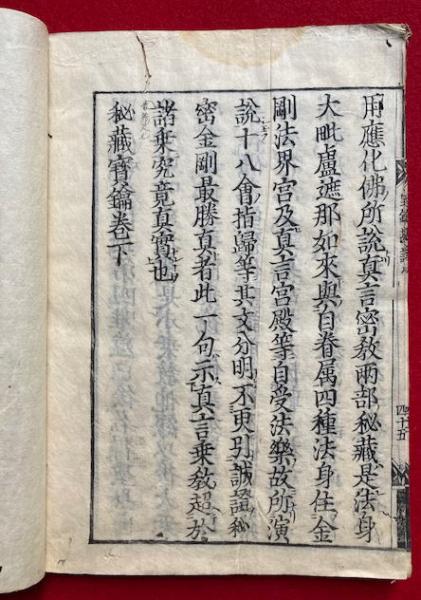 用應化佛所說真言密教兩部秘藏是法身
大毗盧遮那如來與自眷属四種法身住金
剛法界宮及真言宮殿等自受法樂故所演
說十八會指歸等其文分明不更引誠證秘
密金剛最勝真者此一句示真言乗教超於
諸乗究竟真實也
秘藏寶鑰卷下
四十五